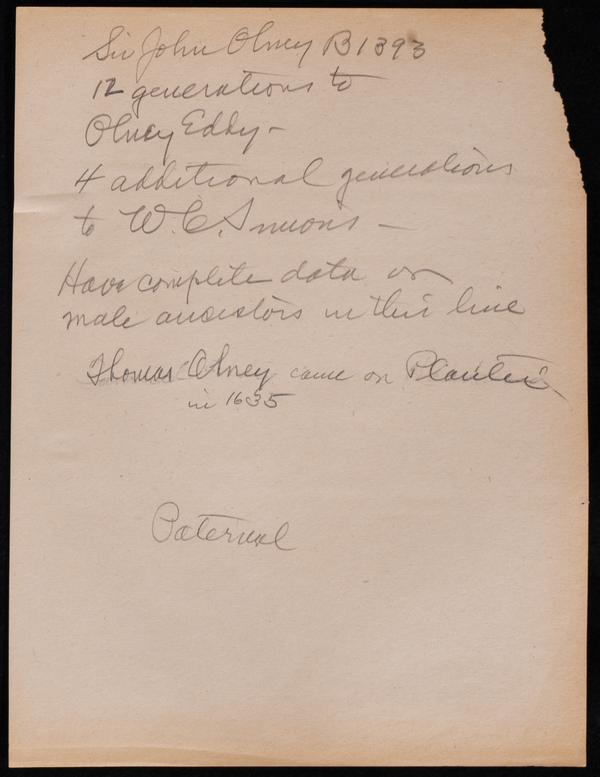 Sir John Olney B 1393
12 generations to
Olney Eddy -
4 additional generations
to W. C. Simons -
Have complete data on
male ancestors in this line
Thomas Olney came on Planter
in 1635
Paternal